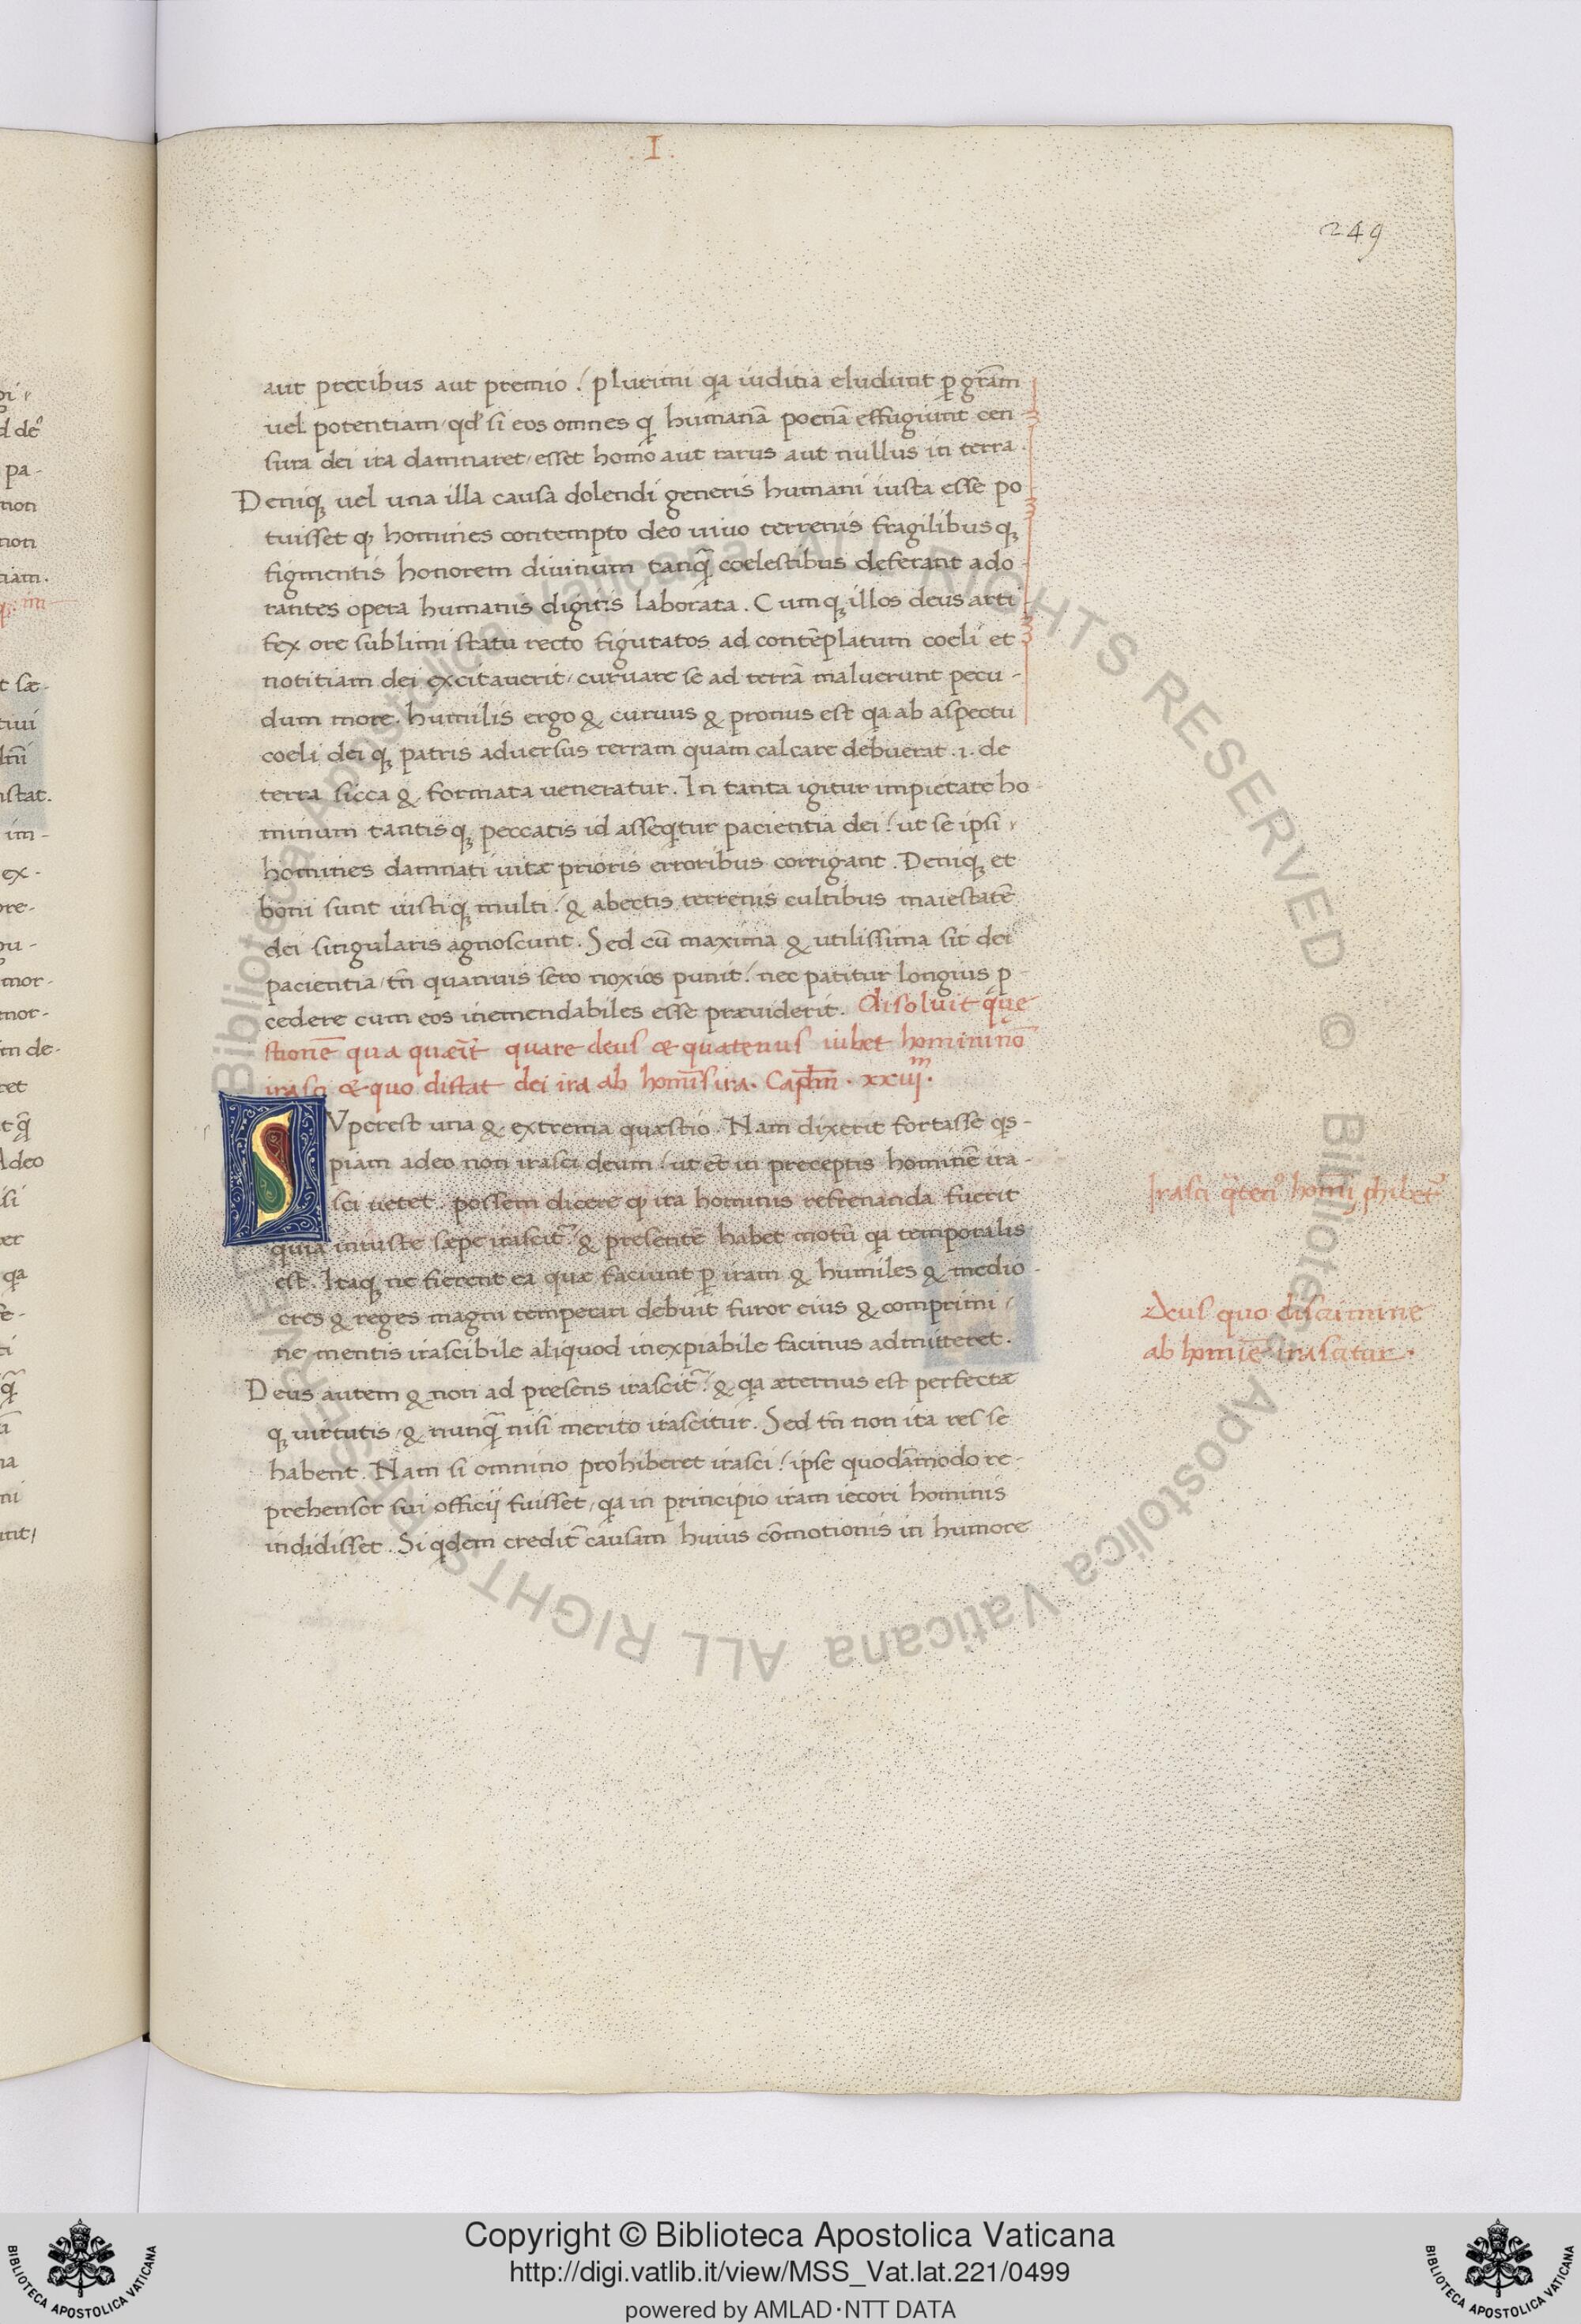 .I.
249
aut precibus aut premio! plurimi qa iuditia eludunt p gr̄am
uel potentiam, qd' si eos omnes q humanā poenā effugiunt cen-
sura dei ira damnaret, esset homo aut rarus aut nullus in terra.
Deniqꝫ uel una illa causa dolendi generis humani iusta esse po
tuisset ꝙ homines contempto deo uiuo terrenis fragilibusqꝫ
figmentis honorem diuinum tanq̄ coelestibus deferant ado-
rantes opera humanis digitis laborata. Cumqꝫ illos deus arti
fex ore sublimi statu recto figuratos ad contēplatum coeli et
notitiam dei excitauerit, curuare se ad terrā maluerunt pecu-
dum more. humilis ergo & curuus & pronus est qa ab aspectu
coeli deiqꝫ patris aduersus terram quam calcare debuerat .i. de
terra sicca & formata ueneratur. In tanta igitur impietate ho-
minum tantisqꝫ peccatis id asseqtur pacientia dei! ut se ipsi,
homines damnati uitæ prioris erroribus corrigant. Deniqꝫ et
boni sunt iustiqꝫ multi! & abectis terrenis cultibus maiestatē
dei singularis agnoscunt. Sed cū maxima & utilissima sit dei
pacientia, tn̄ quamuis sero noxios punit! nec patitur longius p-
cedere cum eos inemendabiles esse præuiderit. Disoluit que
stionē qua quærit̄ quare deus & quatenus iubet homini nō
irasci & quo distat dei ira ab homīs ira. Capl̄m. xxiijᵐ.
SVperest una & extrema quæstio. Nam dixerit fortasse qs-
piam adeo non irasci deum! ut et̄ in preceptis hominē ira-
sci uetet. possem dicere ꝙ ira hominis refrenanda fuerit
quia iniuste sæpe irascit̄! & presentē habet motū qa temporalis
est. Itaqꝫ ne fierent ea quæ faciunt p iram & humiles & medio-
cres & reges magni temperari debuit furor eius & comprimi,
ne mentis irascibile aliquod inexpiabile facinus admitteret.
Deus autem & non ad presens irascit̄! & qa æternus est perfectæ
qꝫ uirtutis, & nunq̄ nisi merito irascitur. Sed tn̄ non ita res se
habent. Nam si omnino prohiberet irasci! ipse quodāmodo re-
prehensor sui officij fuisset, qa in principio iram iecori hominis
indidisset. Si qdem credit̄ causam huius cōmotionis in humore
Irasci q̄ten' homī phibet̄
Deus quo discrimine
ab homīe irascitur.
Biblioteca Apostolica Vaticana ALL RIGHTS RESERVED ©
Biblioteca Apostolica Vaticana ALL RIGHTS RESERVED ©
Copyright © Biblioteca Apostolica Vaticana
http://digi.vatlib.it/view/MSS_Vat.lat.221/0499
powered by AMLAD·NTT DATA
BIBLIOTECA APOSTOLICA VATICANA
BIBLIOTECA APOSTOLICA VATICANA